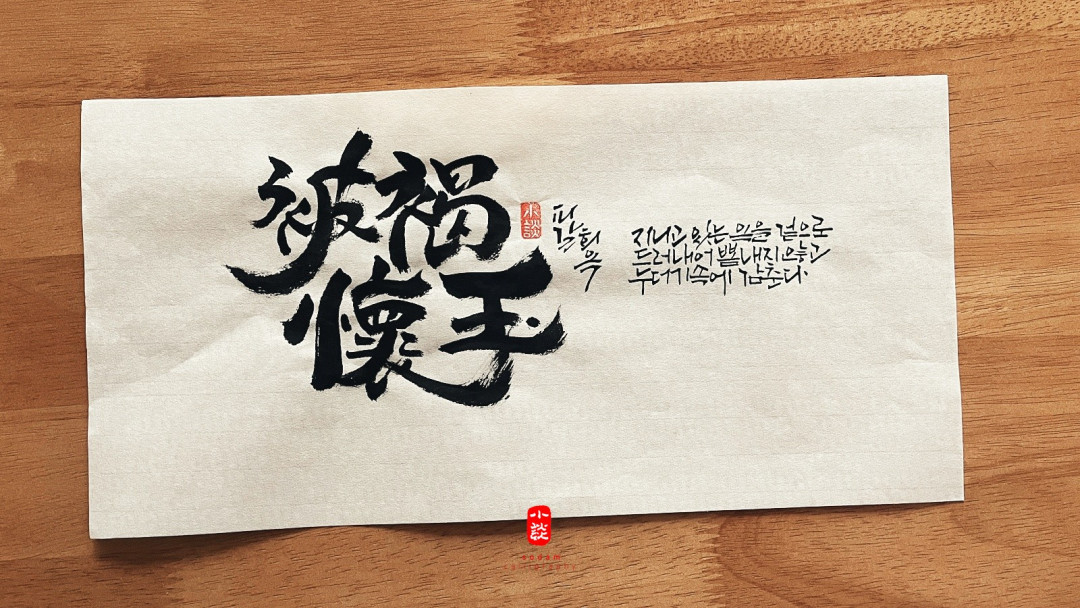 被褐
懷玉
小談
피갈회옥
지니고 있는 옥을 겉으로
드러내어 뽐내지 않고
누더기속에 감춘다.
sodam